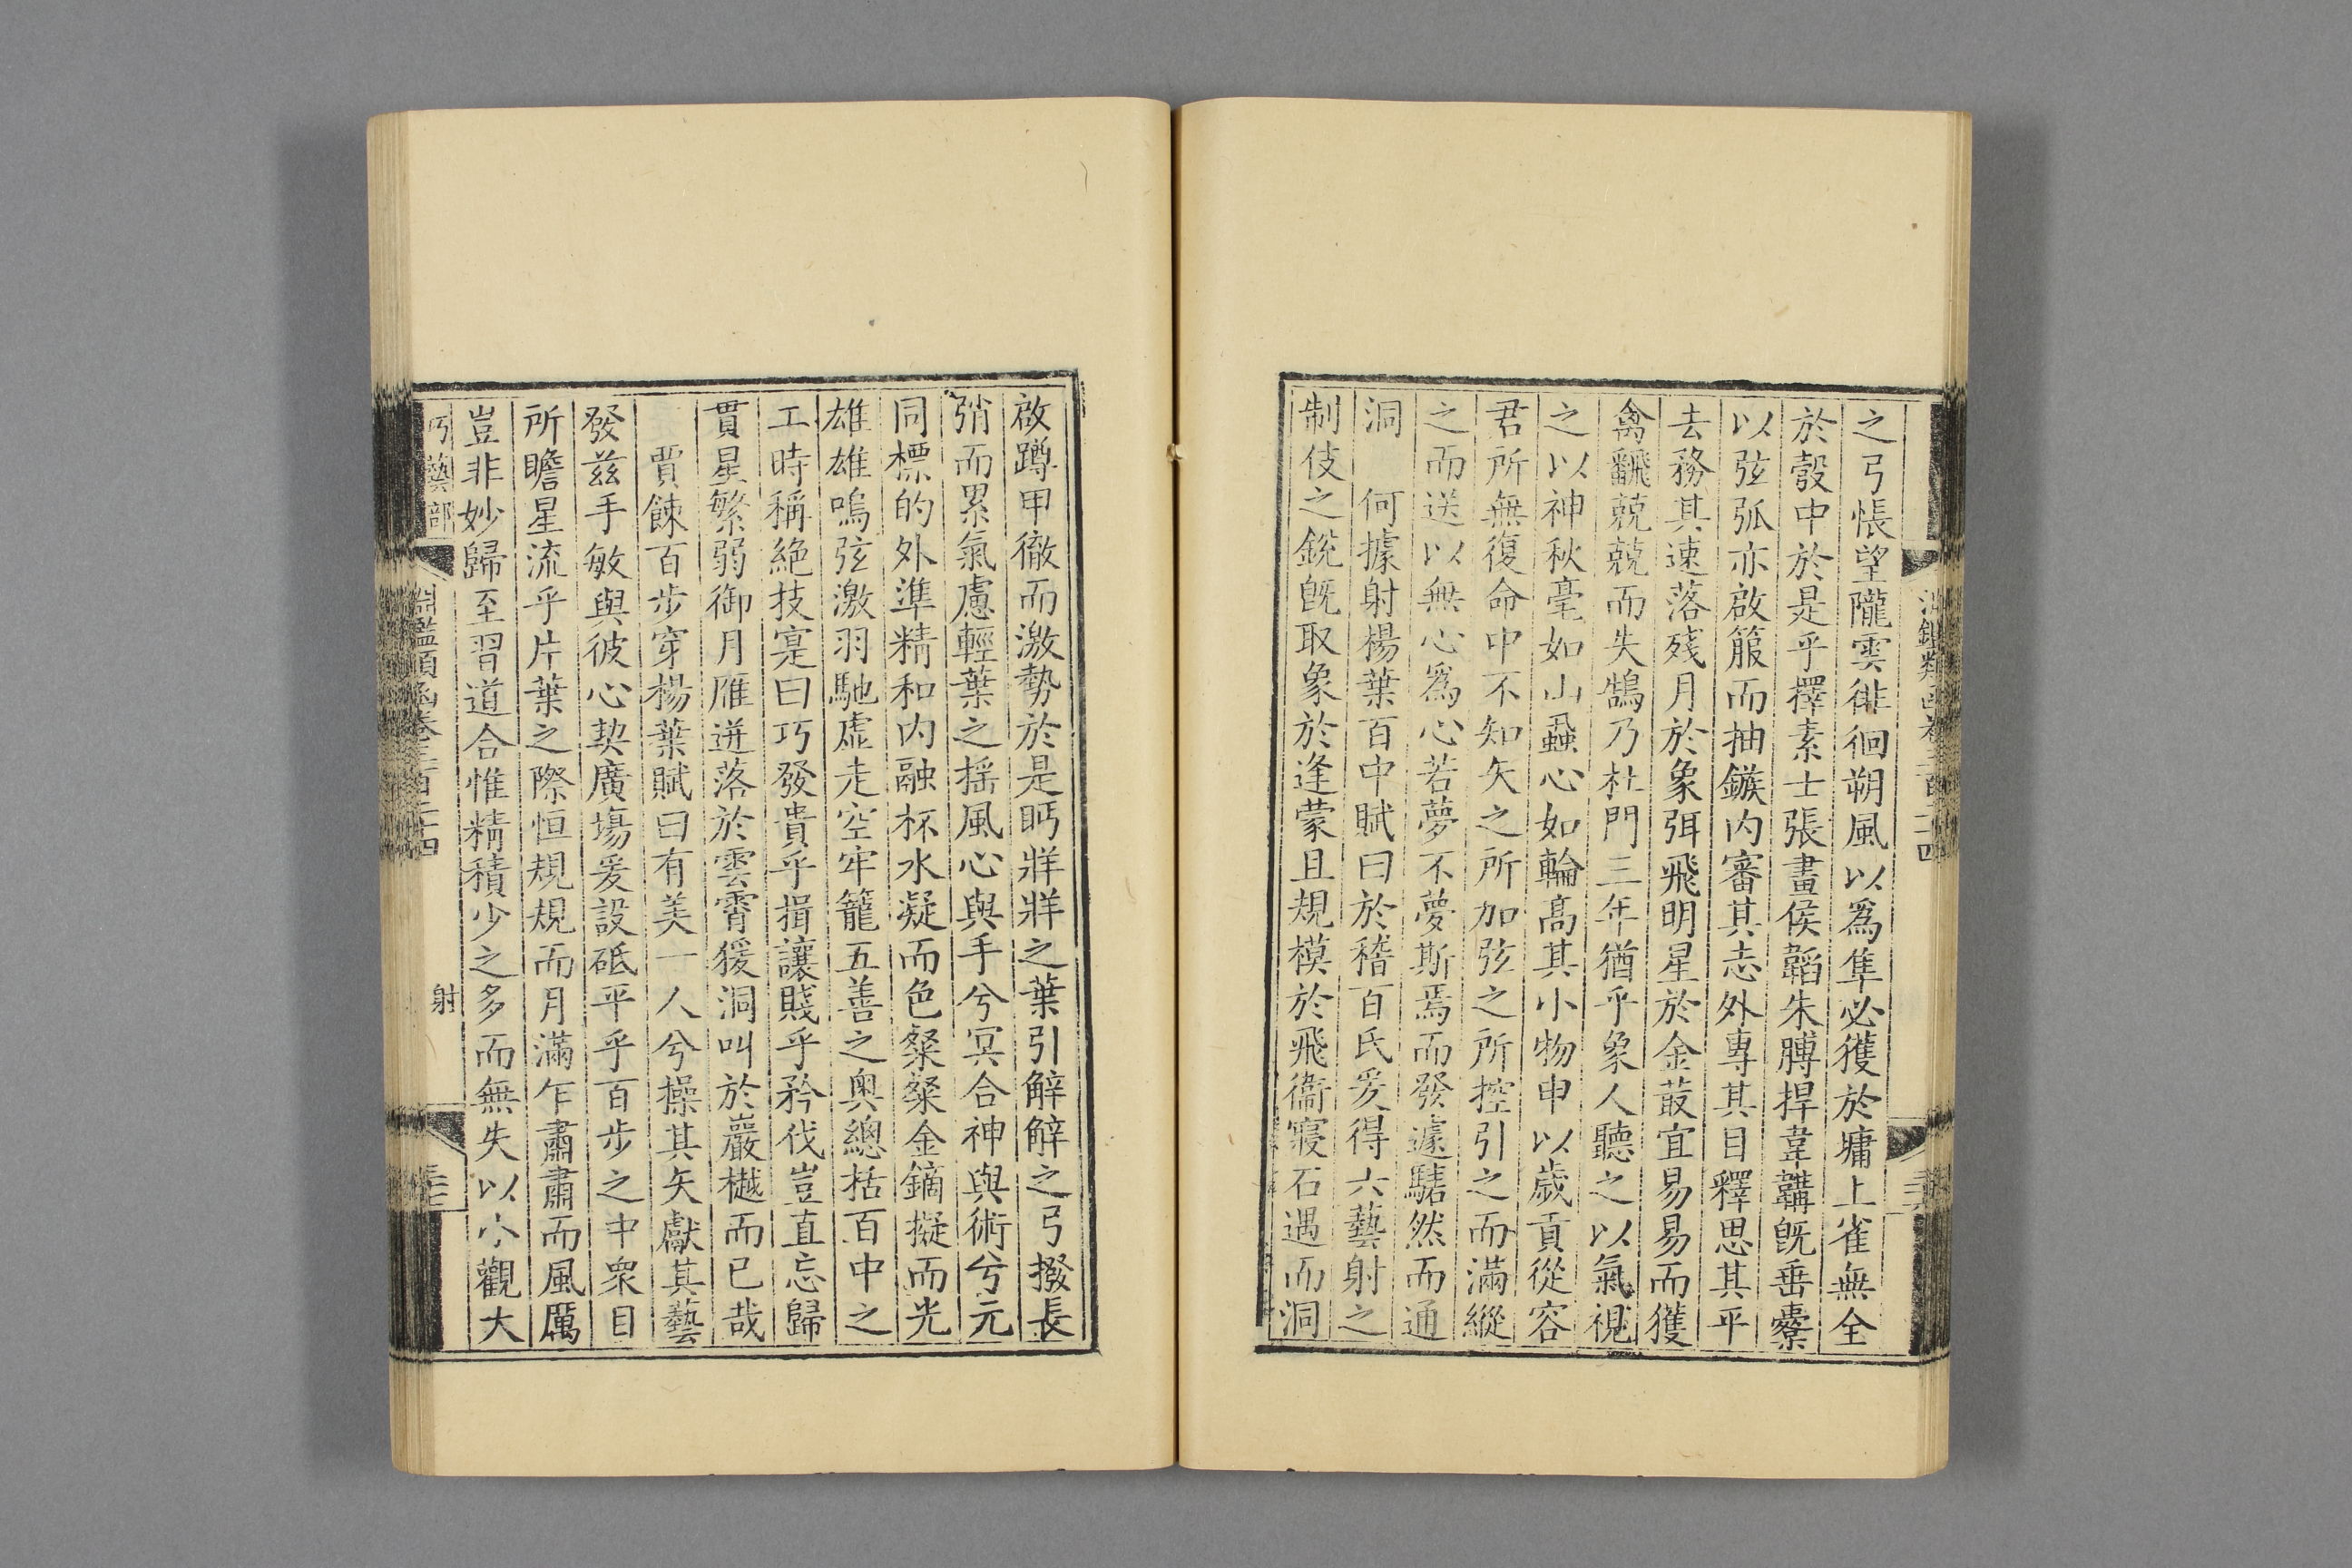 之弓悵望隴雲徘徊朔風以爲隼必獲於墉上雀無全
於彀中於是乎擇素士張畫侯韜朱膊捍韋韝旣垂櫜
以弦弧亦啟箙而抽鏃内審其志外專其目釋思其平
去務其速落殘月於象弭飛明星於金菆宜易易而獲
禽飜兢兢而失鵠乃杜門三年猶乎象人聽之以氣視
之以神秋毫如山蝨心如輪高其小物申以歲貢從容
君所無復命中不知矢之所加弦之所控引之而滿縱
之而送以無心爲心若夢不夢斯焉而發遽騞然而通
洞　何據射楊葉百中賦曰於稽百氏爰得六藝射之
制伎之銳旣取象於逢蒙且規模於飛衞寢石遇而洞
啟蹲甲徹而激勢於是眄牂牂之葉引觧觧之弓撥長
弰而累氣慮輕葉之摇風心與手兮冥合神與術兮元
同標的外準精和内融杯水凝而色粲粲金鏑擬而光
雄雄鳴弦激羽馳虛走空牢籠五善之奥總括百中之
工時稱絶技寔曰巧發貴乎揖讓賤乎矜伐豈直忘歸
貫星繁弱御月雁迸落於雲霄猨洞叫於巖樾而已哉
賈餗百步穿楊葉賦曰有美一人兮操其矢獻其藝
發茲手敏與彼心契廣塲爰設砥平乎百步之中衆目
所瞻星流乎片葉之際恒規規而月滿乍肅肅而風厲
豈非妙歸至習道合惟精積少之多而無失以小觀大
巧藝部　淵鑑類函卷三百二十四　射